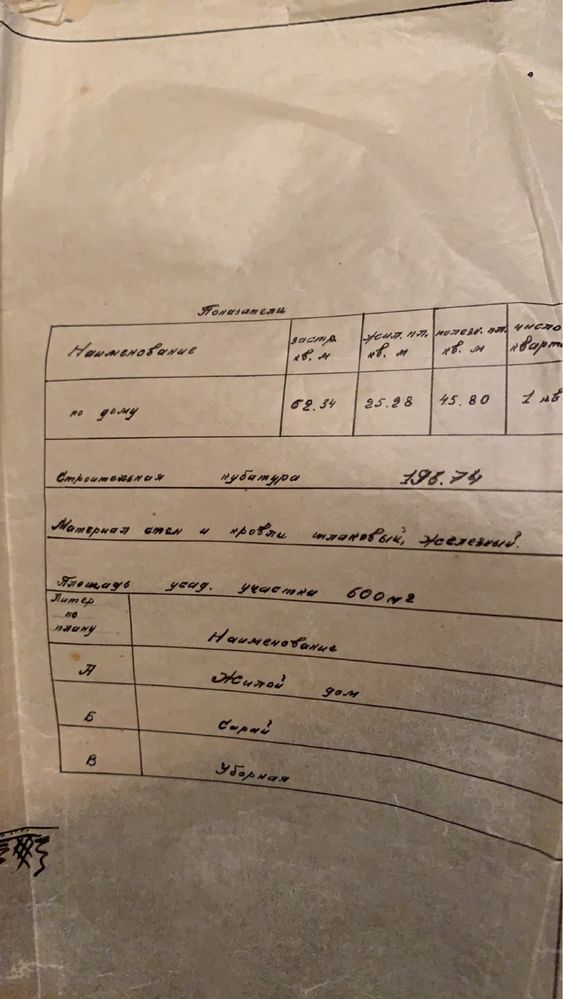 Показатели
Наименование застр. кв. м жил. пл. кв. м полезн. пл. кв. м число кварт
по дому 62.34 25.28 45.80 1 кв
Строительная кубатура 196.74
Материал стен и кровли шлановый, железный.
Площадь усад. участка 600 м2
Литер по плану Наименование
А Жилой дом
Б Сарай
В Уборная